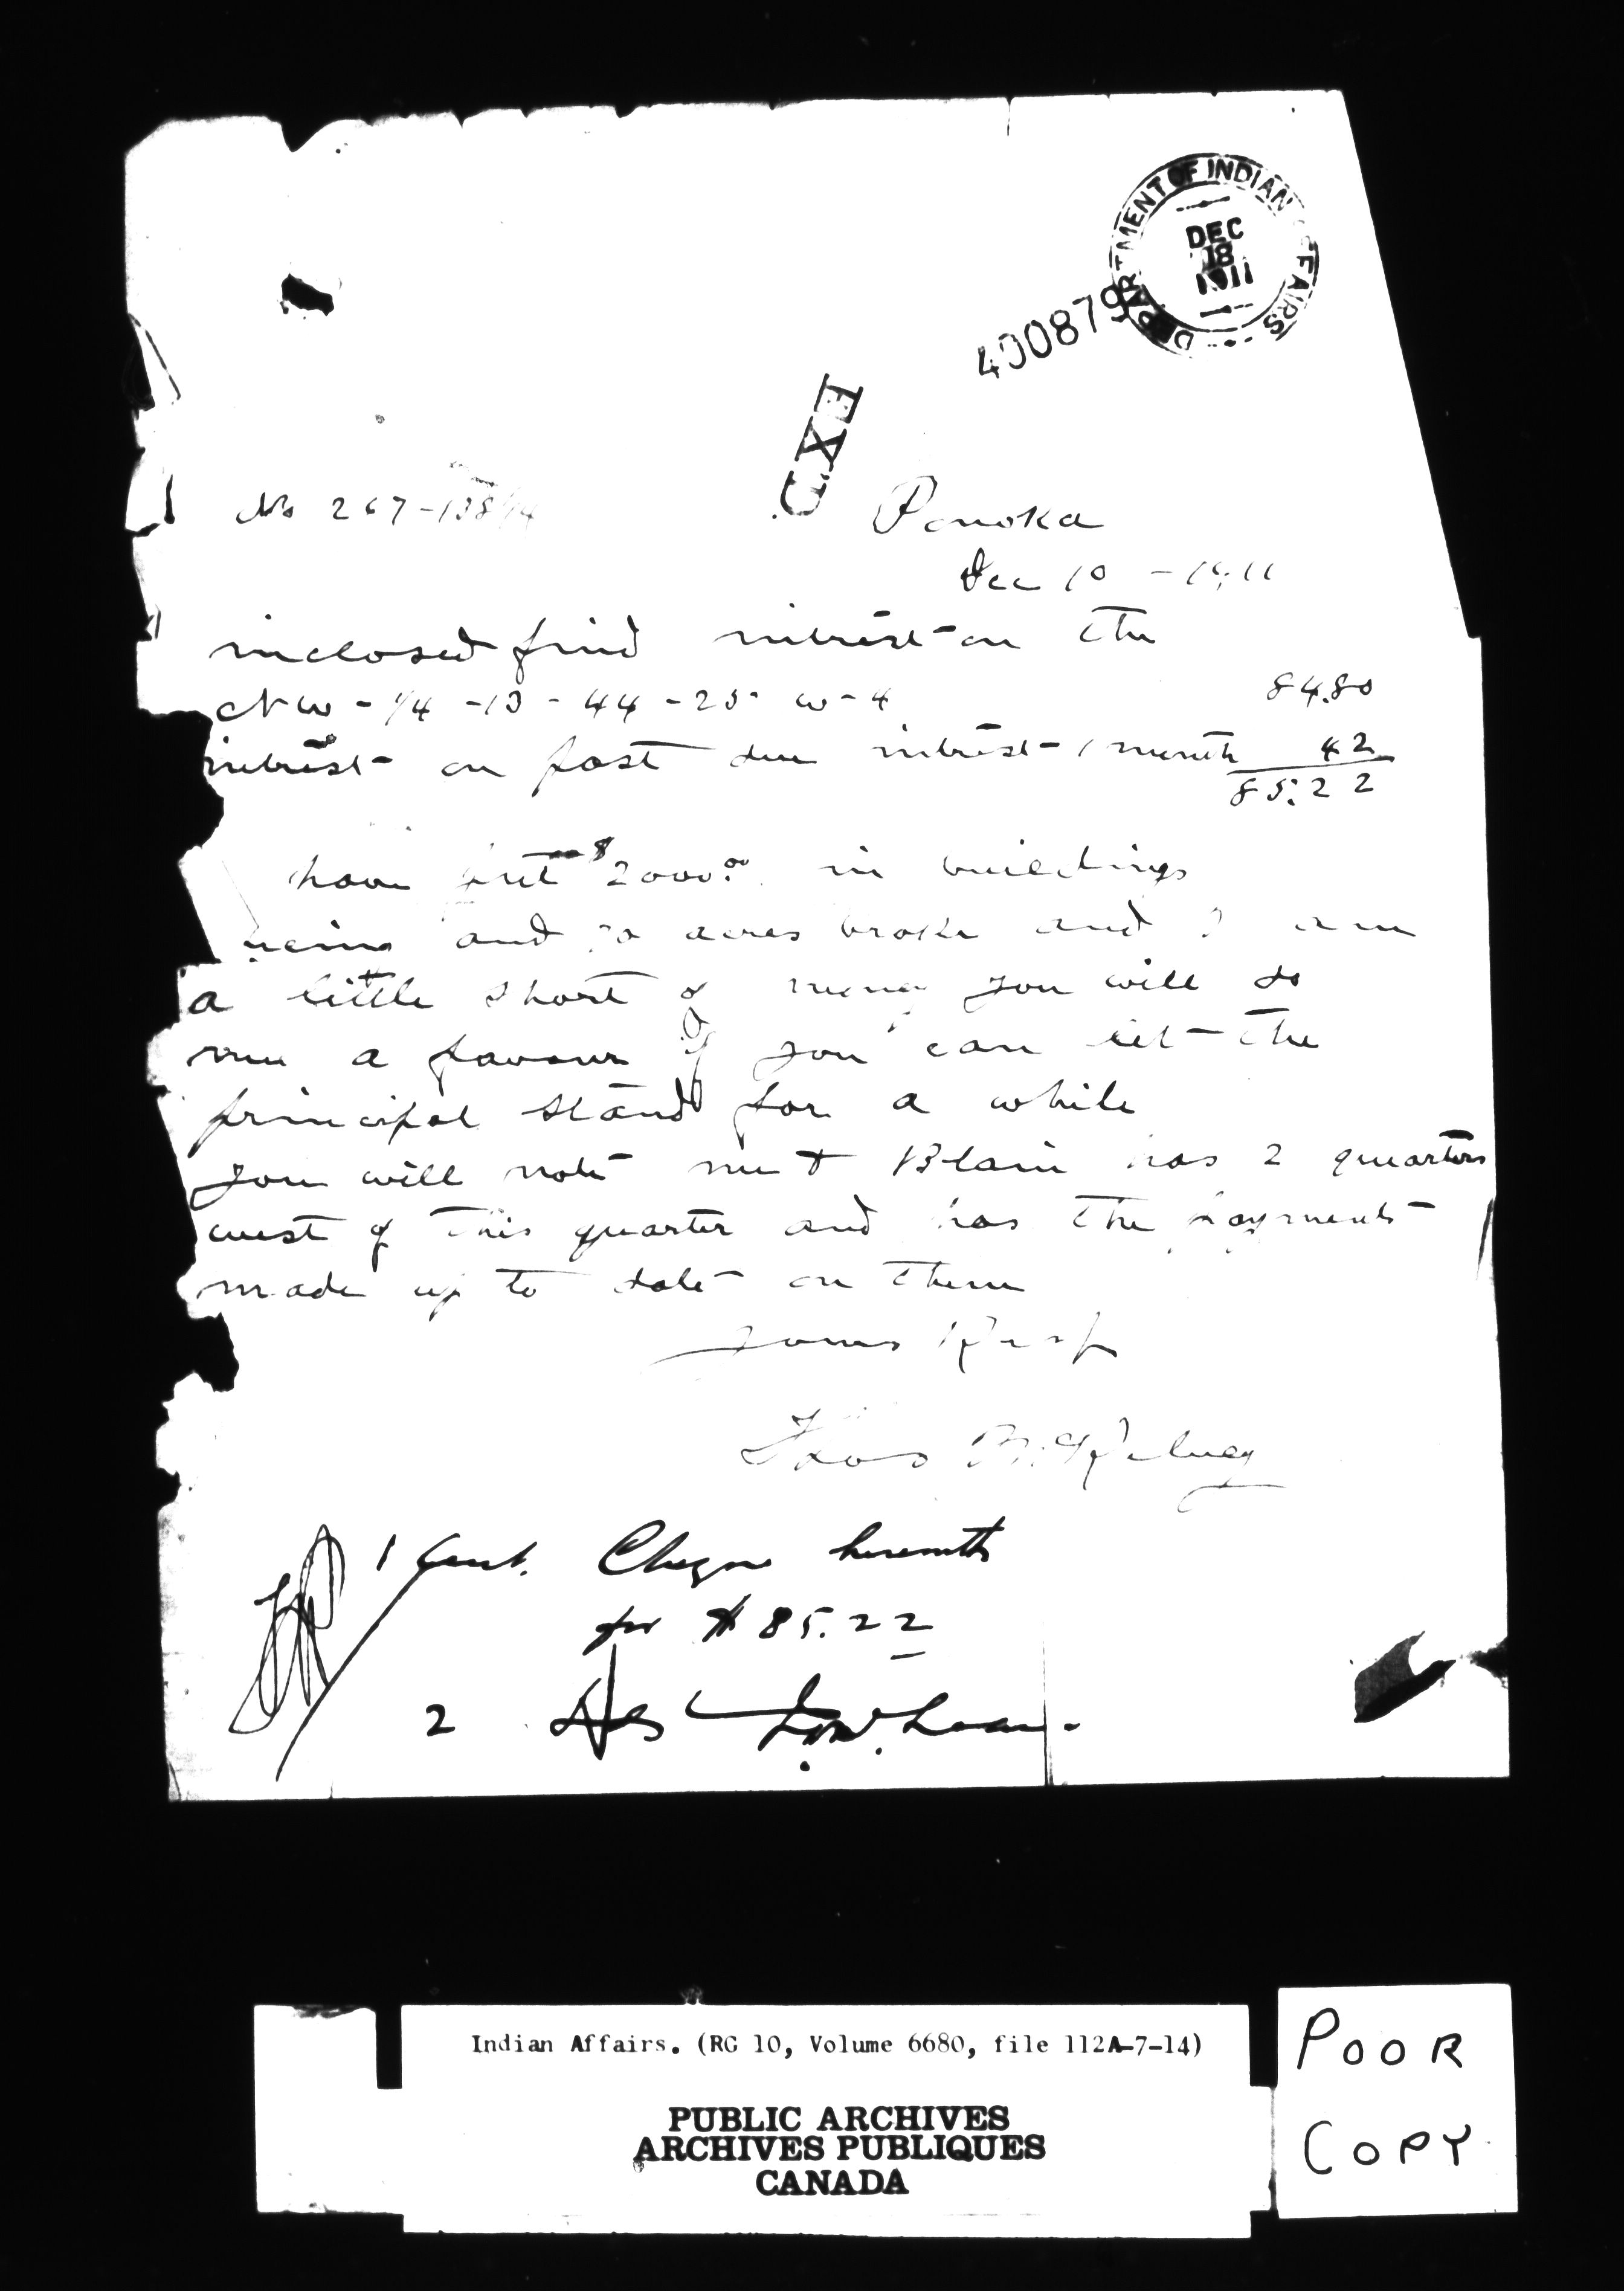 DEPARTMENT OF INDIAN AFFAIRS
DEC
18
1911
400879
EXD
No 267-138/14
Ponoka
Dec 10 - 1911
inclosed find intrest on the
NW - 1/4 - 13 - 44 - 25 w - 4 84.80
intrest on past due intrest 1 month 42
85.22
have put $2000.00 in buildings
and acres broke and I am
a little short of money you will do
me a favour if you can let the
principal stand for a while
you will note me + Blain has 2 quarters
west of this quarter and has the payments
made up to date on them
yours Resp
Thos
1 Cert. Cheque herewith
for $85.22
2
Indian Affairs. (RG 10, Volume 6680, file 112A-7-14)
PUBLIC ARCHIVES
ARCHIVES PUBLIQUES
CANADA
POOR
COPY